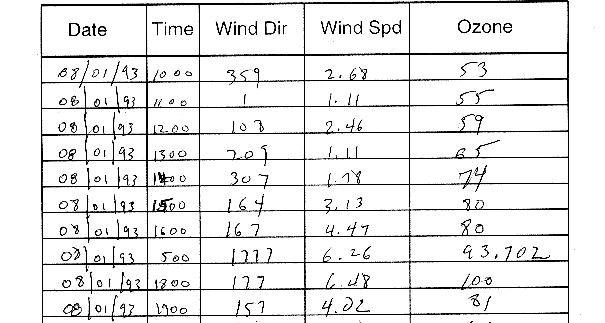 Date Time Wind Dir Wind Spd Ozone
08/01/93 1000 359 2.68 53
08/01/93 1100 1 1.11 55
08/01/93 1200 108 2.46 59
08/01/93 1300 209 1.11 65
08/01/93 1400 307 1.78 74
08/01/93 1500 164 3.13 80
08/01/93 1600 167 4.47 80
08/01/93 500 1777 6.26 93.702
08/01/93 1800 177 6.48 100
08/01/93 1900 157 4.02 81